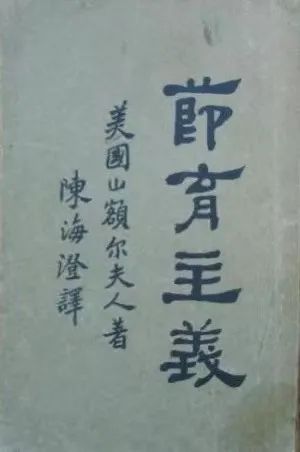 節育主義
美國山額尔夫人著
陳海澄譯